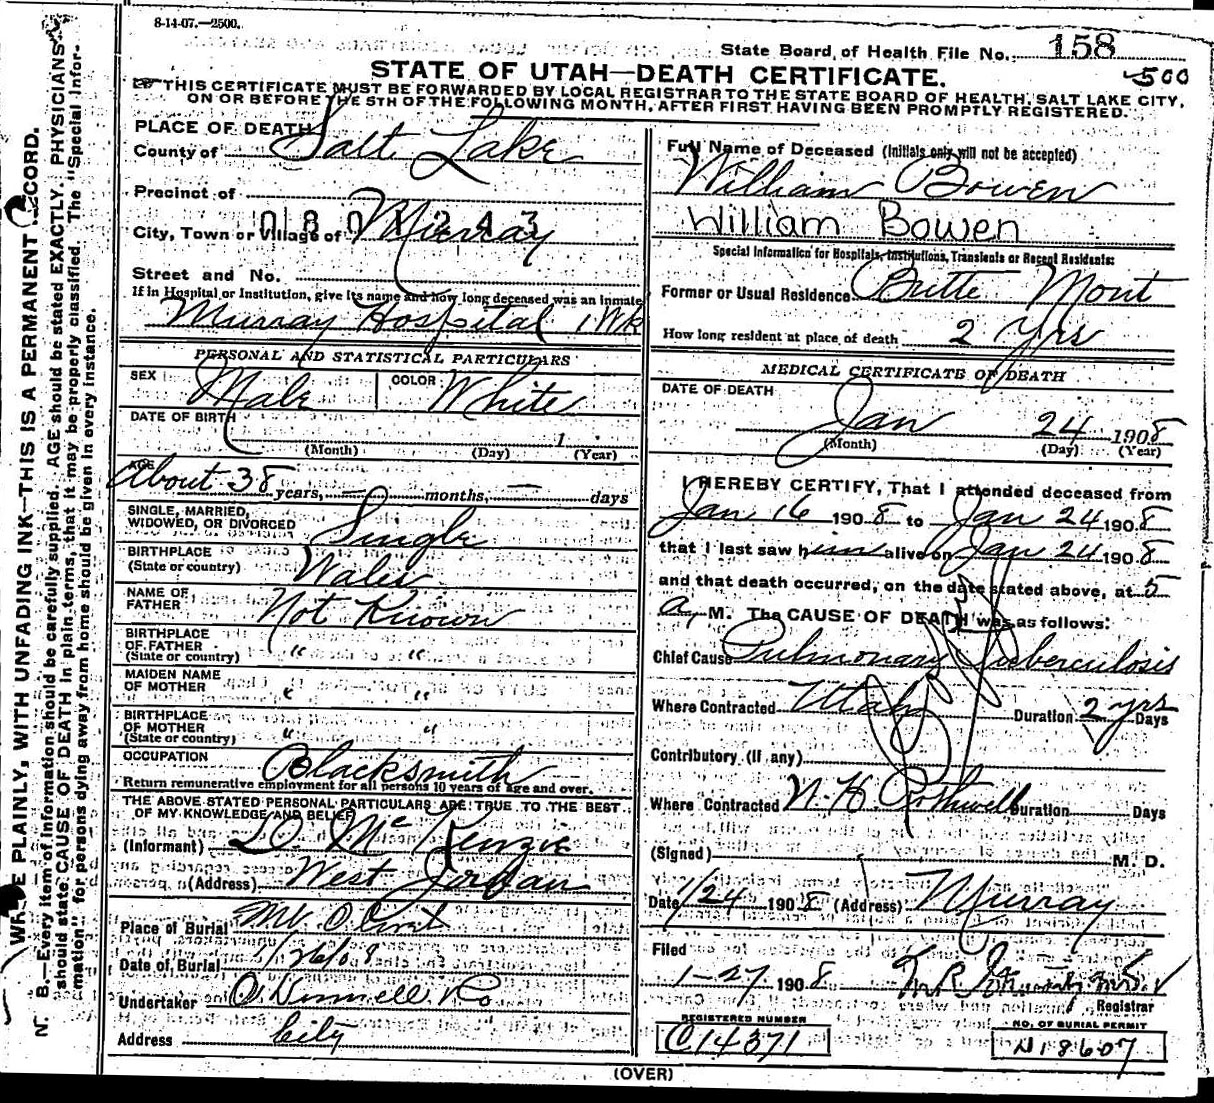 8-14-07.—2500.
State Board of Health File No. 158
STATE OF UTAH—DEATH CERTIFICATE.
500
THIS CERTIFICATE MUST BE FORWARDED BY LOCAL REGISTRAR TO THE STATE BOARD OF HEALTH, SALT LAKE CITY,
ON OR BEFORE THE 5TH OF THE FOLLOWING MONTH, AFTER FIRST HAVING BEEN PROMPTLY REGISTERED.
WRITE PLAINLY, WITH UNFADING INK—THIS IS A PERMANENT RECORD.
N. B.—Every item of information should be carefully supplied. AGE should be stated EXACTLY. PHYSICIANS
should state CAUSE OF DEATH in plain terms, that it may be properly classified. The "Special Infor-
mation" for persons dying away from home should be given in every instance.
PLACE OF DEATH
County of Salt Lake
Precinct of
0801243
City, Town or Village of Murray
Street and No.
If in Hospital or Institution, give its name and how long deceased was an inmate
Murray Hospital 1 Wk
PERSONAL AND STATISTICAL PARTICULARS
SEX Male COLOR White
DATE OF BIRTH
1
(Month) (Day) (Year)
AGE About 38 years, — months, — days
SINGLE, MARRIED,
WIDOWED, OR DIVORCED Single
BIRTHPLACE
(State or country) Wales
NAME OF
FATHER Not Known
BIRTHPLACE
OF FATHER
(State or country) " "
MAIDEN NAME
OF MOTHER " "
BIRTHPLACE
OF MOTHER
(State or country) " "
OCCUPATION Blacksmith
Return remunerative employment for all persons 10 years of age and over.
THE ABOVE STATED PERSONAL PARTICULARS ARE TRUE TO THE BEST
OF MY KNOWLEDGE AND BELIEF
(Informant) D. McKenzie
(Address) West Jordan
Place of Burial Mt Olivet
Date of Burial 1/26/08
Undertaker O'Donnell & Co
Address City
Full Name of Deceased (Initials only will not be accepted)
William Bowen
William Bowen
Special Information for Hospitals, Institutions, Transients or Recent Residents:
Former or Usual Residence Butte Mont
How long resident at place of death 2 Yrs
MEDICAL CERTIFICATE OF DEATH
DATE OF DEATH
Jan 24 1908
(Month) (Day) (Year)
I HEREBY CERTIFY, That I attended deceased from
Jan 16 1908 to Jan 24 1908
that I last saw him alive on Jan 24 1908
and that death occurred, on the date stated above, at 5
a. M. The CAUSE OF DEATH was as follows:
Chief Cause Pulmonary Tuberculosis
Where Contracted Utah Duration 2 yrs Days
Contributory (If any)
Where Contracted Duration Days
N. H. Rothwell
(Signed) M. D.
Date 1/24 1908 (Address) Murray
Filed
1-27 1908
Registrar
REGISTERED NUMBER
C14371
NO. OF BURIAL PERMIT
N18607
(OVER)